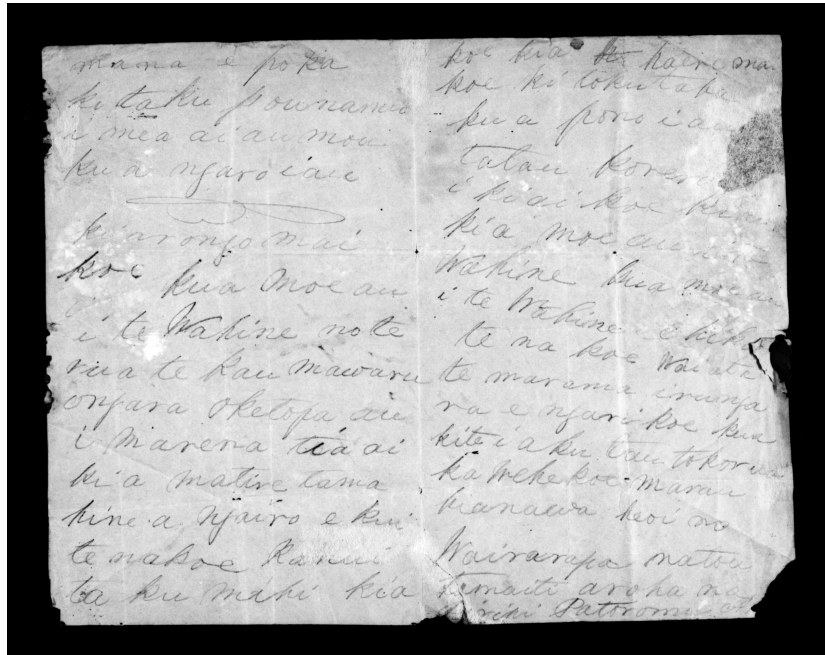 mana e poka
ki taku pounamu
i mea ai au mou
ku a ngaro i au
ki a rongo mai
koe kua moe au
i te Wahine no te
rua te kau mawaru
ongara Oketopa au
i marena tia ai
ki a matire tama
hine a Ngairo e kui
te na koe Kanui
ta ku mihi kia
koe kia haere mai
koe ki toku taha
ku a pono i au
tatau korero
i ki ai koe
kia moe au
Wahine kua moe au
i te Wahine e
te na koe Waiata
te marama i runga
ra e ngari koe kua
kite i a ku tau tokorua
ka wehe koe marau
manawa heoi no
Wairarapa na tou
tamaiti aroha na
Patoromu